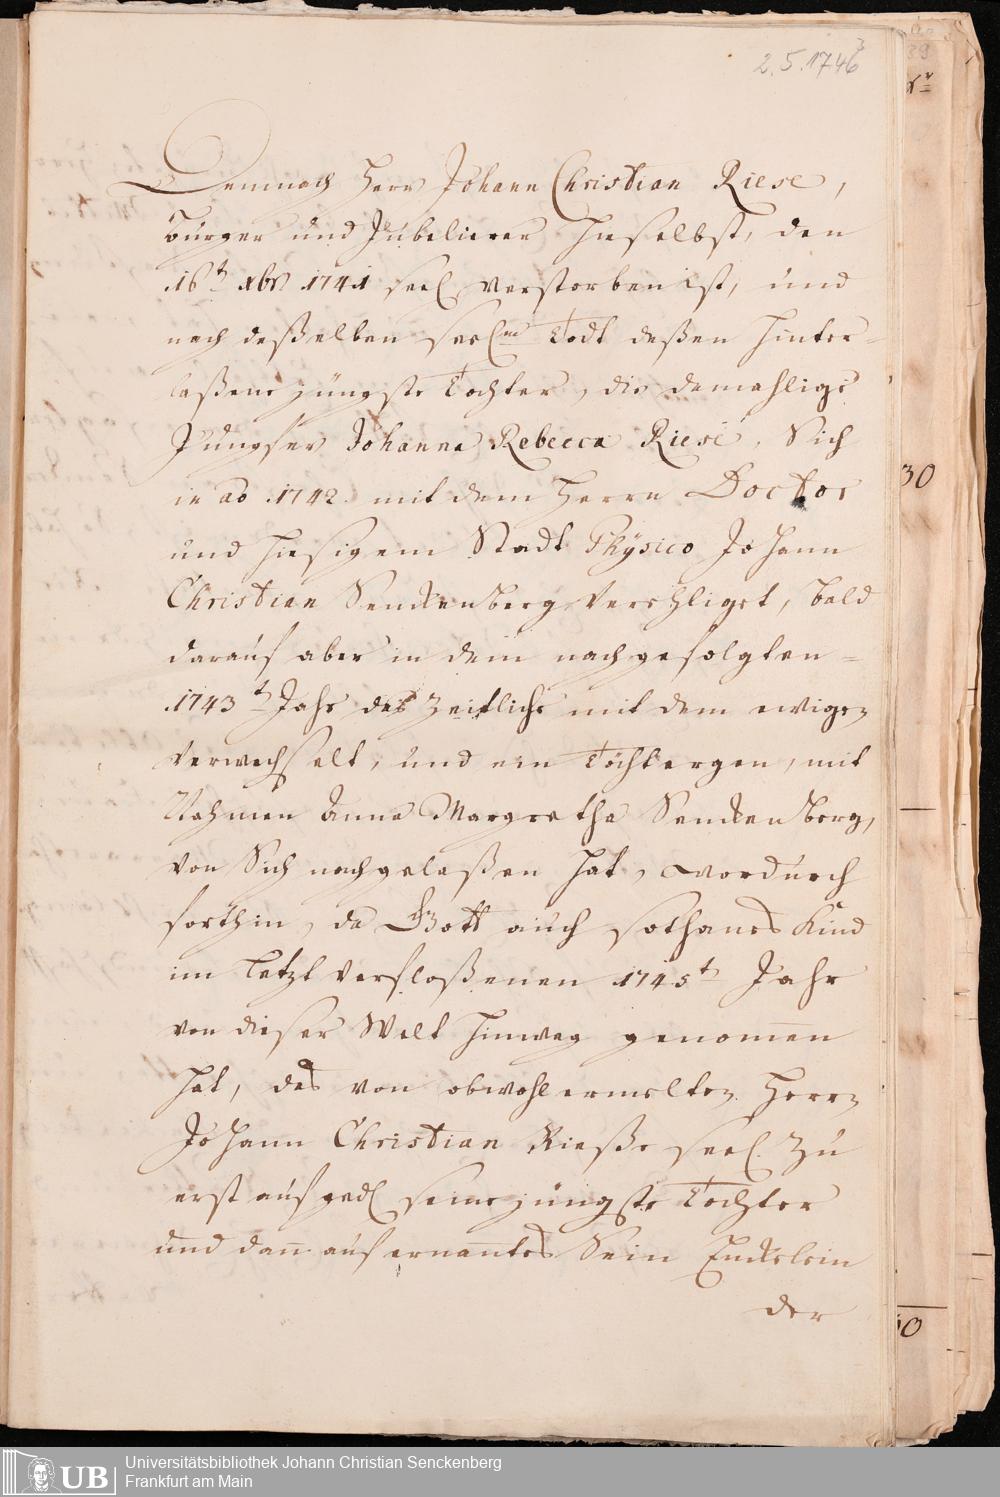 2.5.1746
3
Demnach Herr Johann Christian Riese,
Bürger und Jubelierer hieselbst, den
16t xbr 1741 seel. verstorben ist, und
nach deßelben seelm Todt deßen hinter-
laßene jüngste Tochter, die damahlige
Jungfer Johanna Rebecca Riese, Sich
in ao 1742 mit dem Herrn Doctor
und hiesigem Stadt Physico Johann
Christian Senckenberg Verehliget, bald
darauf aber in dem nachgefolgten
1743t Jahr das Zeitliche mit dem ewigen
verwechselt, und ein Töchtergen, mit
Nahmen Anna Margretha Senckenberg,
von Sich nachgelaßen hat, wordurch
forthin, da Gott auch sothanes Kind
im letzt verfloßenen 1745t Jahr
von dieser Welt hinweg genomen
hat, das von obwohlermelten Herrn
Johann Christian Rieße seel. zu
erst auf ged. seine jüngste Tochter
und dan auf ernantes Sein Enckelein
der
30
Universitätsbibliothek Johann Christian Senckenberg
Frankfurt am Main
UB